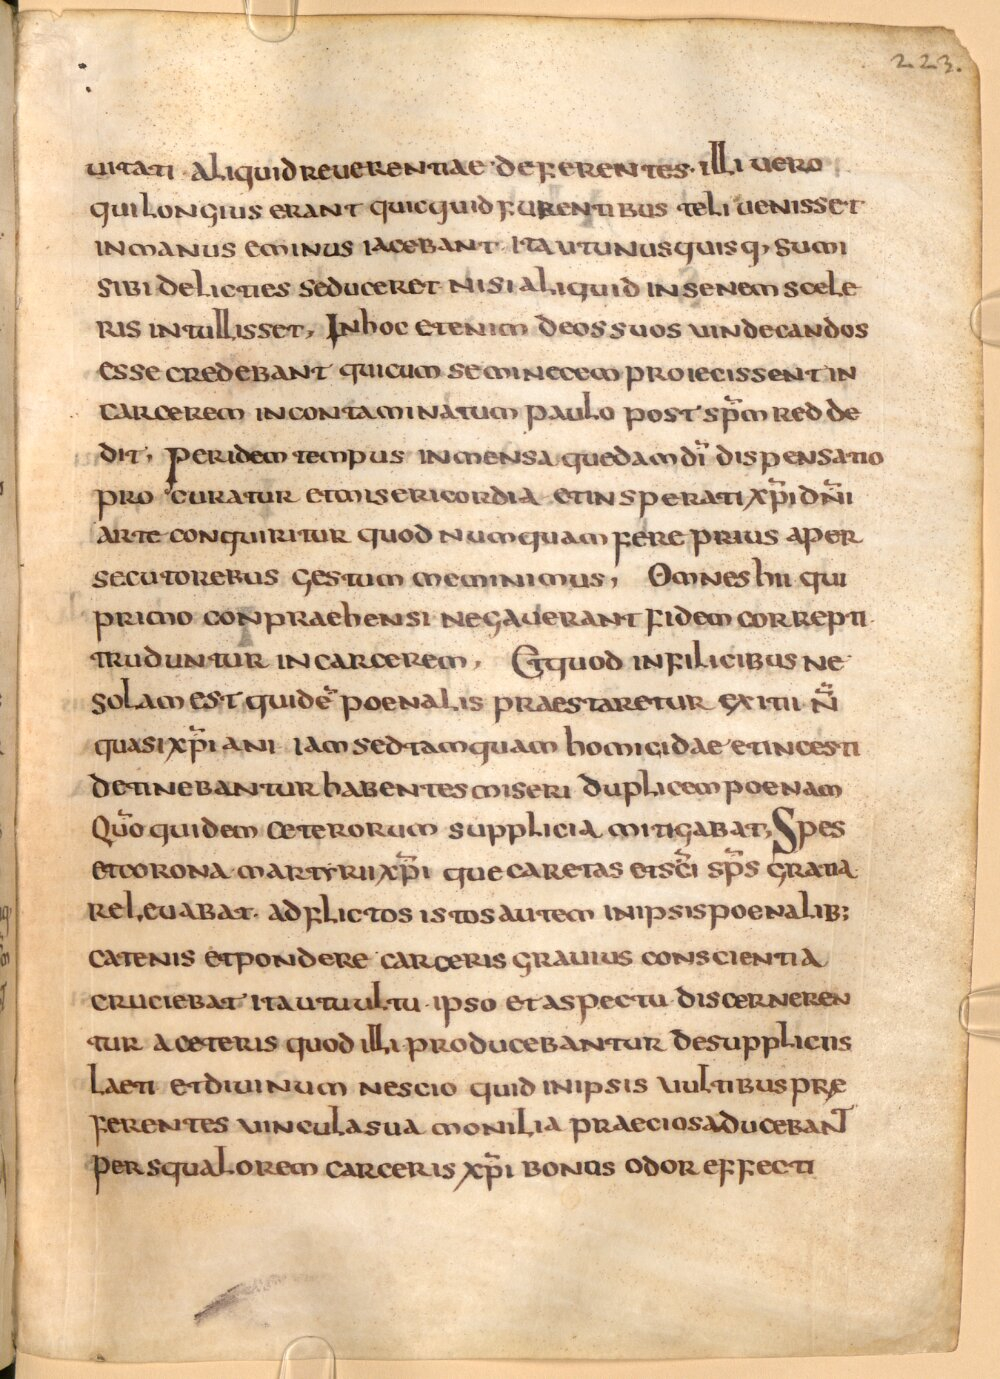 223.
uitati aliquid reuerentiae deferentes. illi uero
qui longius erant quicquid furentibus teli uenisset
in manus eminus iacebant ita ut unus quisq, sumi
sibi delicties seduceret nisi aliquid in senem scele
ris intullisset, In hoc etenim deos suos uindecandos
esse credebant qui cum seminecem proiecissent in
carcerem incontaminatum paulo post sp̄m redde
dit, Per idem tempus inmensa quedam dī dispensatio
pro curatur et misericordia et insperati xp̄i dn̄i
arte conquiritur quod numquam fere prius a per
secutorebus gestum meminimus, Omnes hii qui
primo conpraehensi negauerant fidem correpti
truduntur in carcerem, Et quod infilicibus ne
solam est quidē poenalis praestaretur exitii n̄
quasi xp̄iani iam sed tamquam homicidae et incesti
detinebantur habentes miseri duplicem poenam
Quō quidem ceterorum supplicia mitigabat, Spes
et corona martyrii xp̄i que caretas et sc̄i sp̄s gratia
releuabat. adflictos istos autem in ipsis poenalib;
catenis et pondere carceris grauius conscientia
cruciebat ita ut uultu ipso et aspectu discerneren
tur a ceteris quod illi producebantur de suppliciis
laeti et diuinum nescio quid in ipsis uultibus præ
ferentes uincula sua monilia praeciosa ducebant
per squalorem carceris xp̄i bonus odor effecti